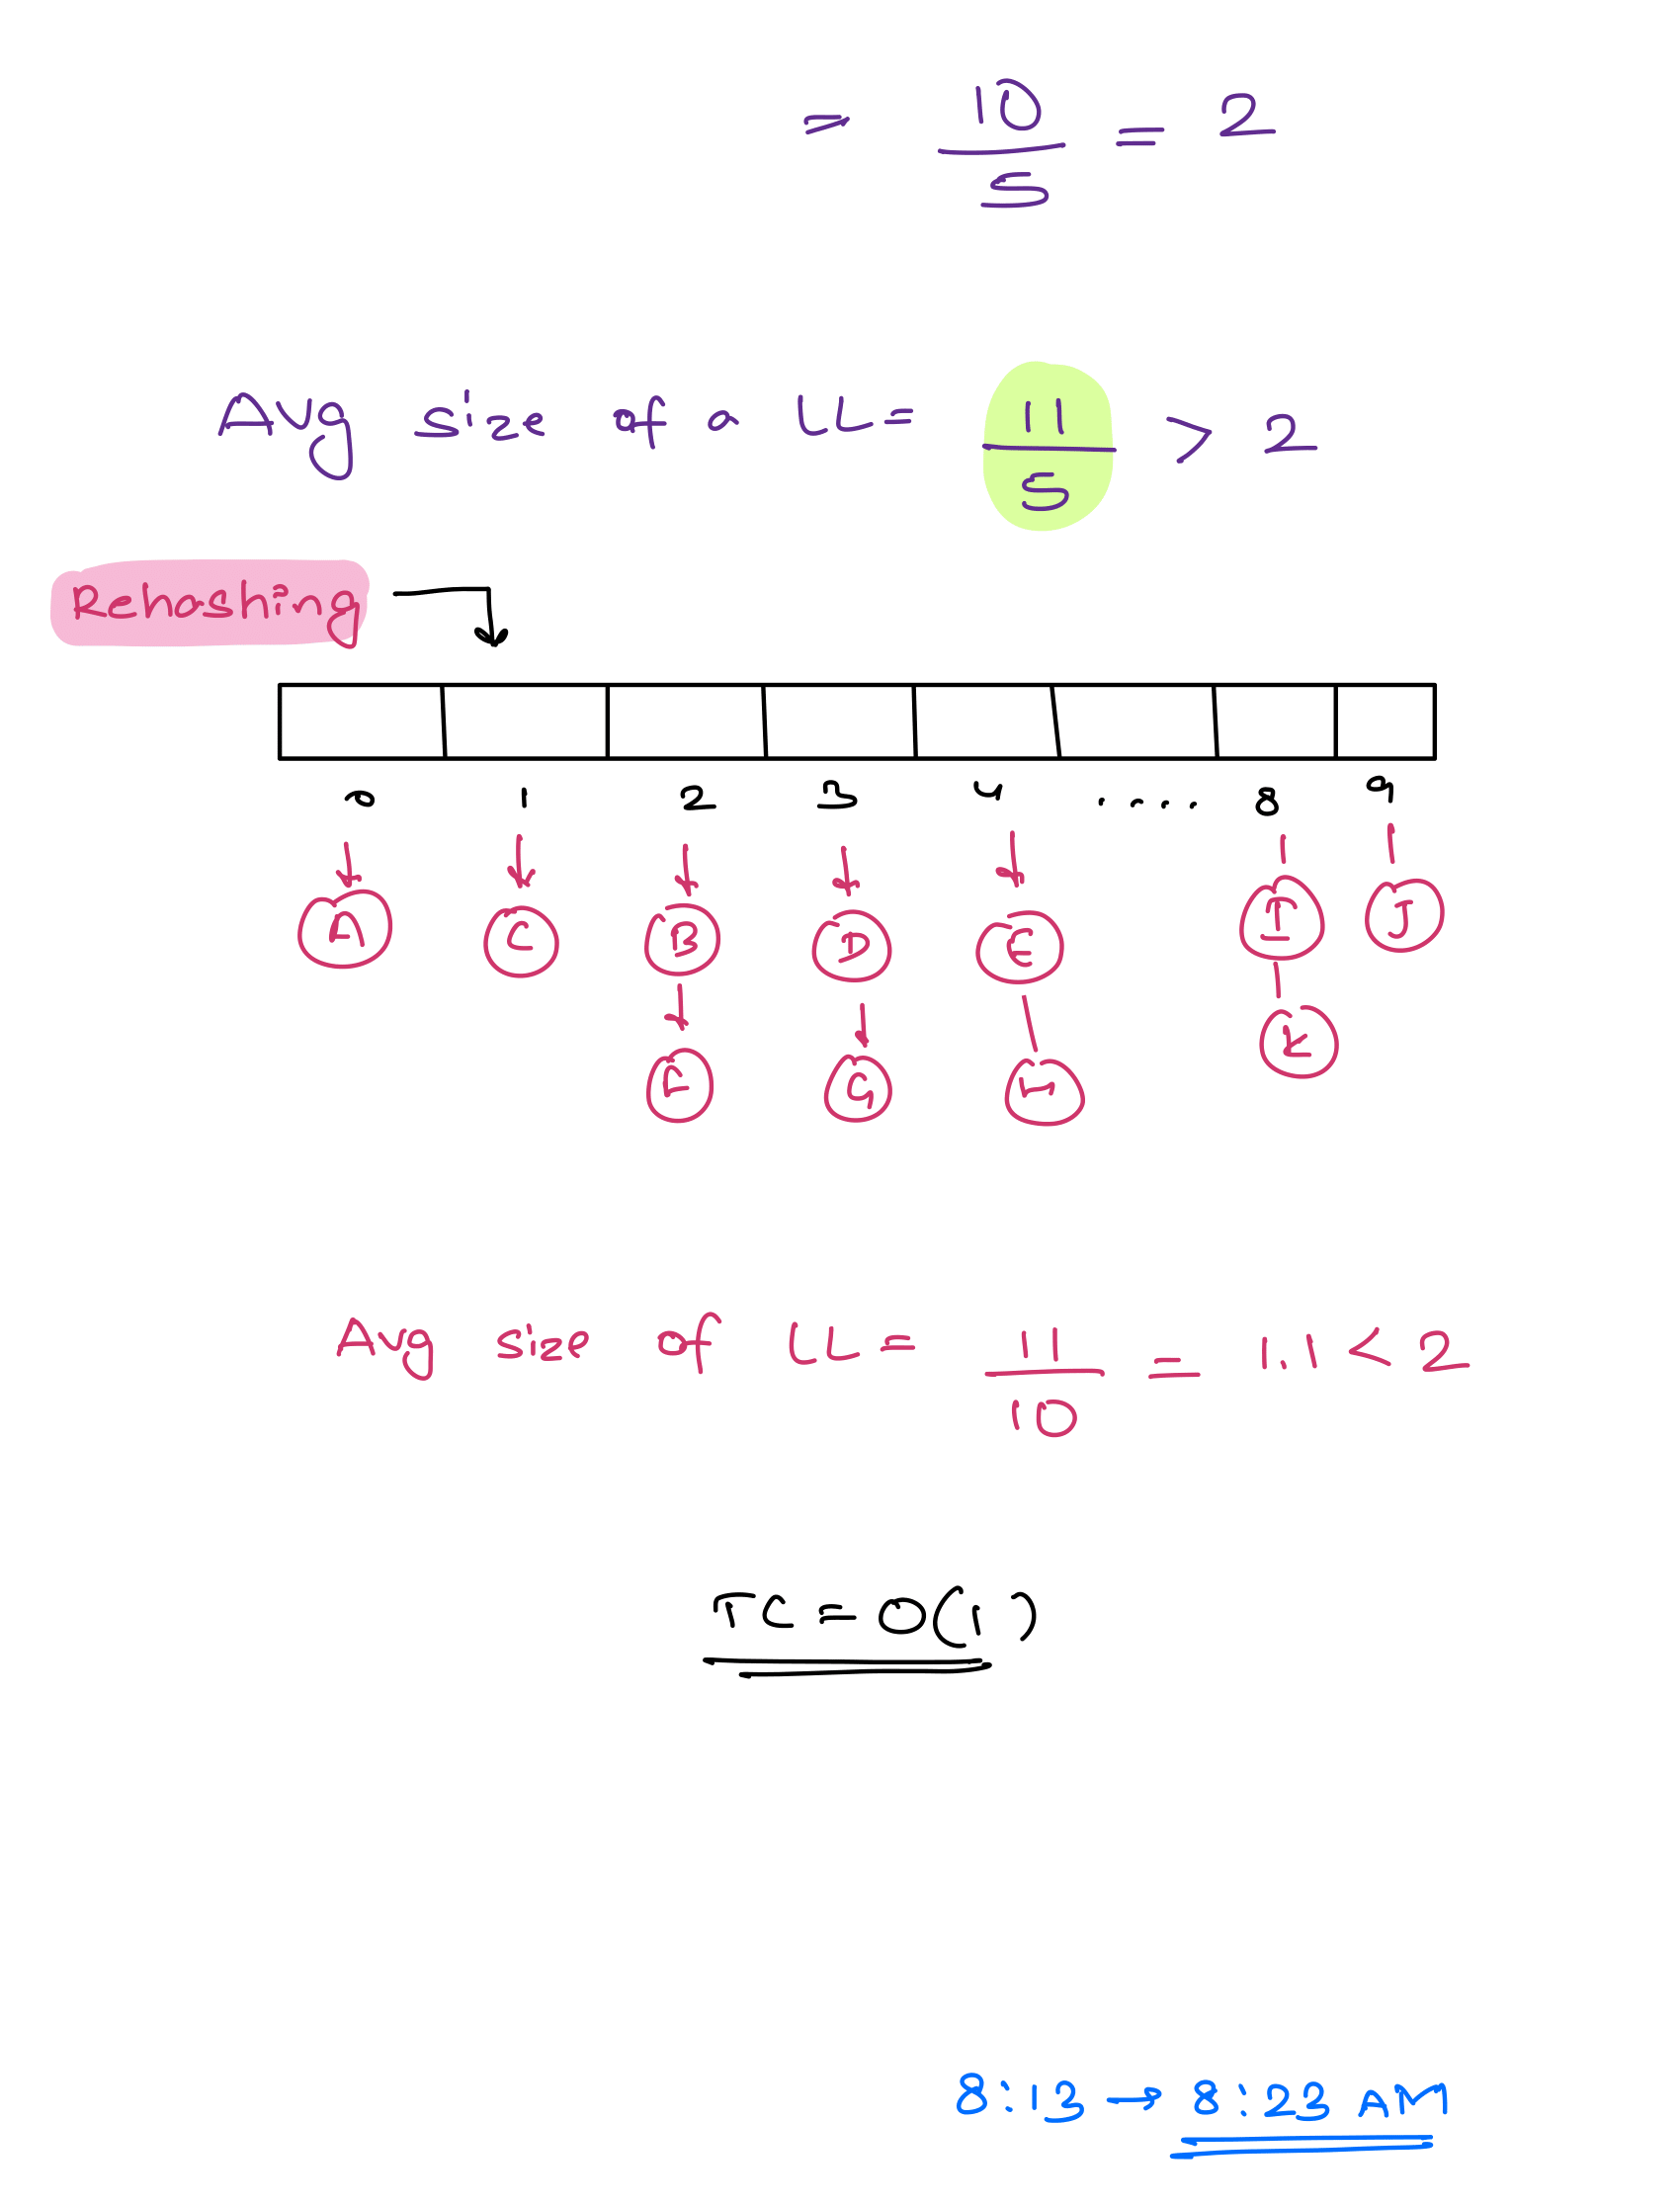 = 10/5 = 2
Avg size of a LL = 11/5 > 2
Rehashing
0 1 2 3 4 .... 8 9
A C B D E I J
F G H K
Avg size of LL = 11/10 = 1.1 < 2
TC = O(1)
8:13 → 8:23 AM